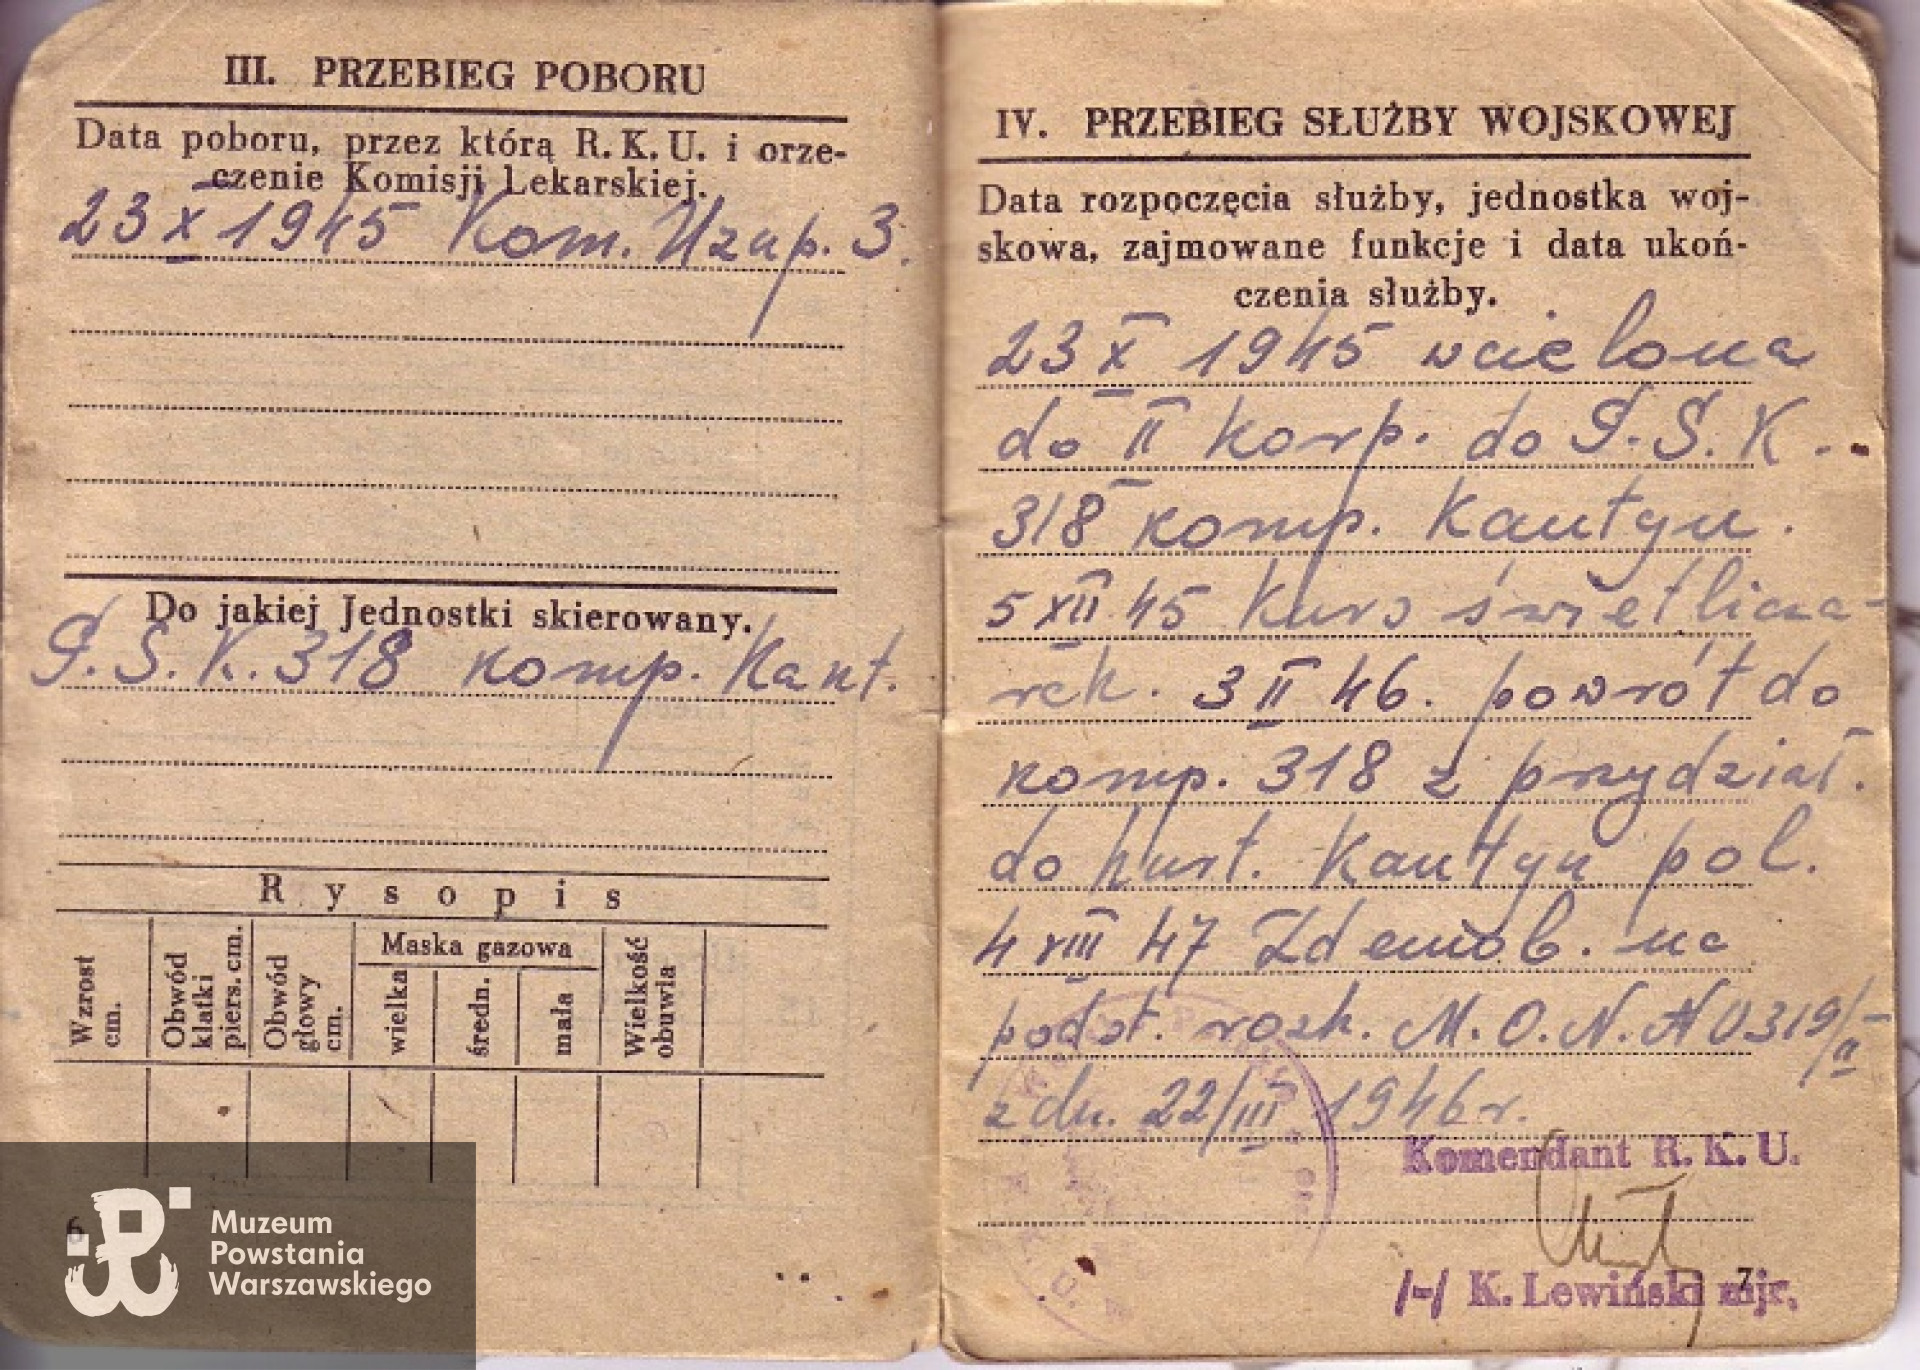 III. PRZEBIEG POBORU
Data poboru, przez którą R. K. U. i orze-
czenie Komisji Lekarskiej.
23 X 1945 Kom. Uzup. 3.
Do jakiej Jednostki skierowany.
P. S. K. 318 komp. Kant.
Rysopis
Wzrost cm.
Obwód klatki piers. cm.
Obwód głowy cm.
Maska gazowa
wielka
średn.
mała
Wielkość obuwia
6
Muzeum
Powstania
Warszawskiego
IV. PRZEBIEG SŁUŻBY WOJSKOWEJ
Data rozpoczęcia służby, jednostka woj-
skowa, zajmowane funkcje i data ukoń-
czenia służby.
23 X 1945 wcielona
do II korp. do P. S. K.
318 komp. Kantyn.
5 XII 45 Kurs świetlicza-
rek. 3 II 46. powrót do
komp. 318 z przydział.
do hurt. Kantyn pol.
4 VIII 47 Zdemob. na
podst. rozk. M. O. N. N 0319/II
z dn. 22/III 1946 r.
Komendant R. K. U.
/-/ K. Lewiński mjr.
7